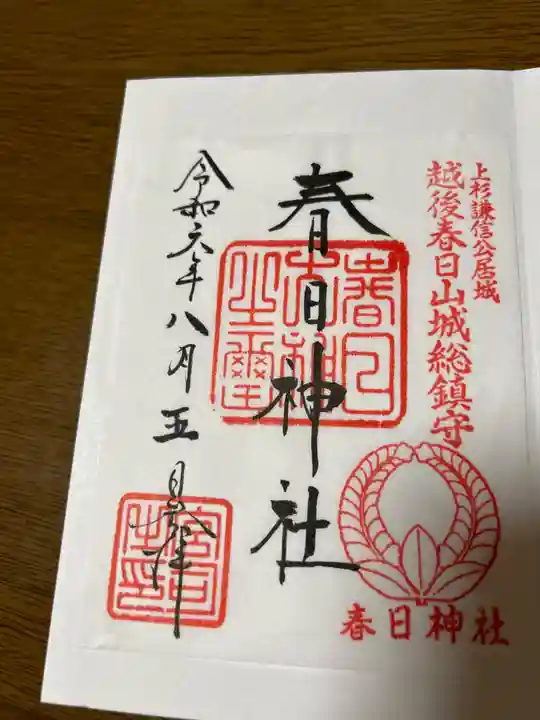 上杉謙信公居城
越後春日山城総鎮守
春日神社
春日神社
令和六年八月五日